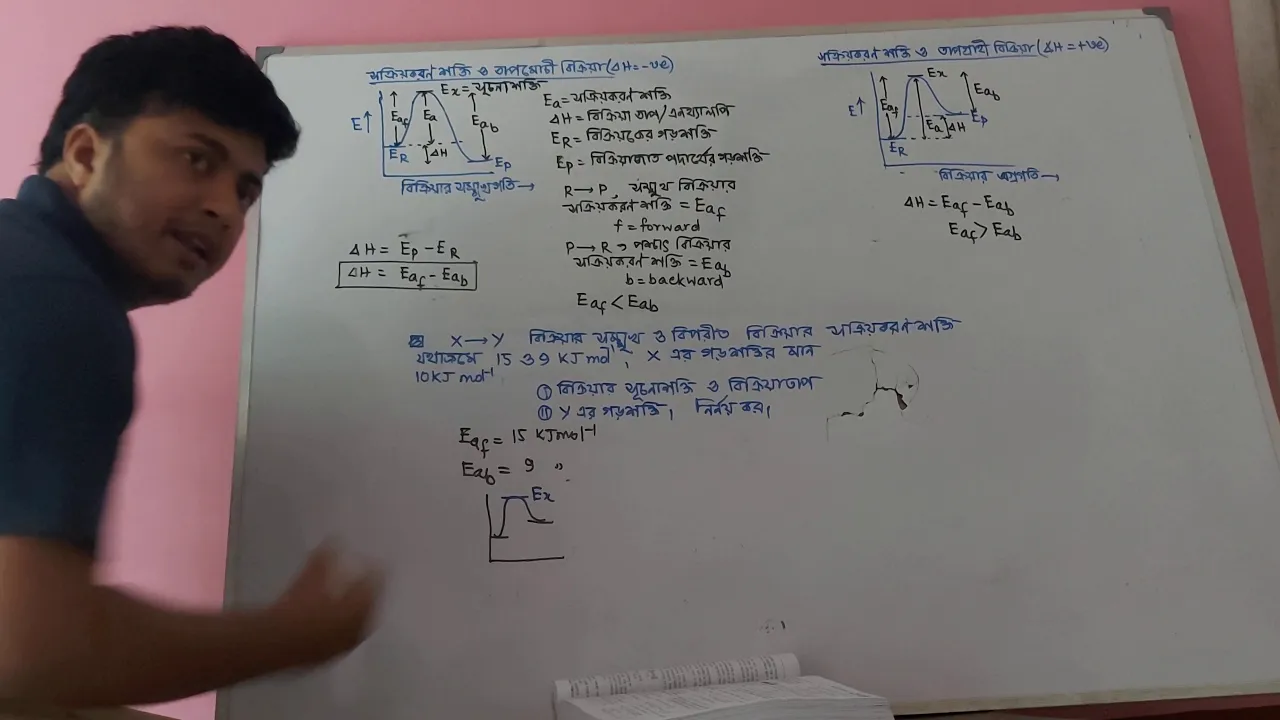 সক্রিয়করণ শক্তি ও তাপমোচী বিক্রিয়া (ΔH=-ve)
Ex = সূচনাশক্তি
E↑
Eaf
Ea
Eab
ER
ΔH
EP
বিক্রিয়ার সম্মুখগতি →
ΔH = EP - ER
ΔH = Eaf - Eab
Ea = সক্রিয়করণ শক্তি
ΔH = বিক্রিয়া তাপ/এনথ্যালপি
ER = বিক্রিয়কের গড়শক্তি
EP = বিক্রিয়াজাত পদার্থের গড়শক্তি
R → P, সম্মুখ বিক্রিয়ার
সক্রিয়করণ শক্তি = Eaf
f = forward
P → R, পশ্চাৎ বিক্রিয়ার
সক্রিয়করণ শক্তি = Eab
b = backward
Eaf < Eab
সক্রিয়করণ শক্তি ও তাপহারী বিক্রিয়া (ΔH = +ve)
E↑
Eaf
Ex
Eab
Ea
ΔH
EP
ER
বিক্রিয়ার অগ্রগতি →
ΔH = Eaf - Eab
Eaf > Eab
X → Y বিক্রিয়ার সম্মুখ ও বিপরীত বিক্রিয়ার সক্রিয়করণ শক্তি
যথাক্রমে 15 ও 9 KJ mol⁻¹, X এর গড়শক্তির মান
10 KJ mol⁻¹
(i) বিক্রিয়ার সূচনাশক্তি ও বিক্রিয়াতাপ
(ii) Y এর গড়শক্তি, নির্নয় কর।
Eaf = 15 KJmol⁻¹
Eab = 9 "
Ex